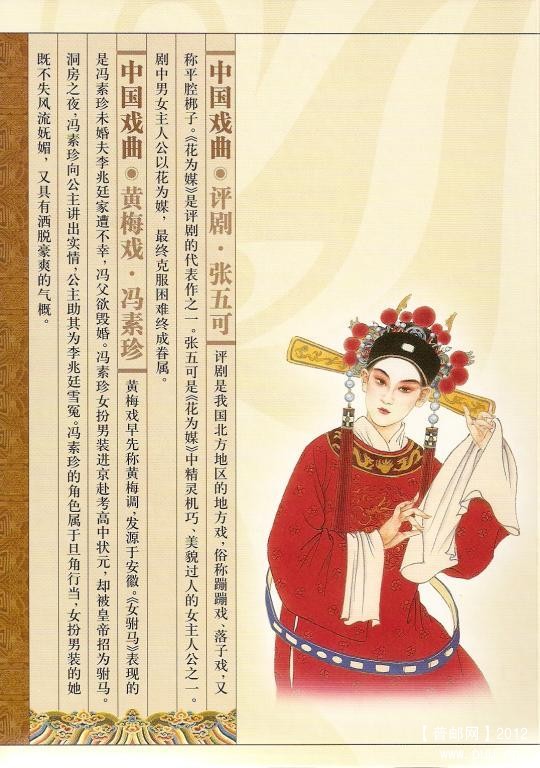 中国戏曲●评剧·张五可 评剧是我国北方地区的地方戏，俗称蹦蹦戏、落子戏，又
称平腔梆子。《花为媒》是评剧的代表作之一。张五可是《花为媒》中精灵机巧、美貌过人的女主人公之一。
剧中男女主人公以花为媒，最终克服困难终成眷属。
中国戏曲●黄梅戏·冯素珍 黄梅戏早先称黄梅调，发源于安徽。《女驸马》表现的
是冯素珍未婚夫李兆廷家遭不幸，冯父欲毁婚。冯素珍女扮男装进京赴考高中状元，却被皇帝招为驸马。
洞房之夜，冯素珍向公主讲出实情，公主助其为李兆廷雪冤。冯素珍的角色属于旦角行当，女扮男装的她
既不失风流妩媚，又具有洒脱豪爽的气概。
2012